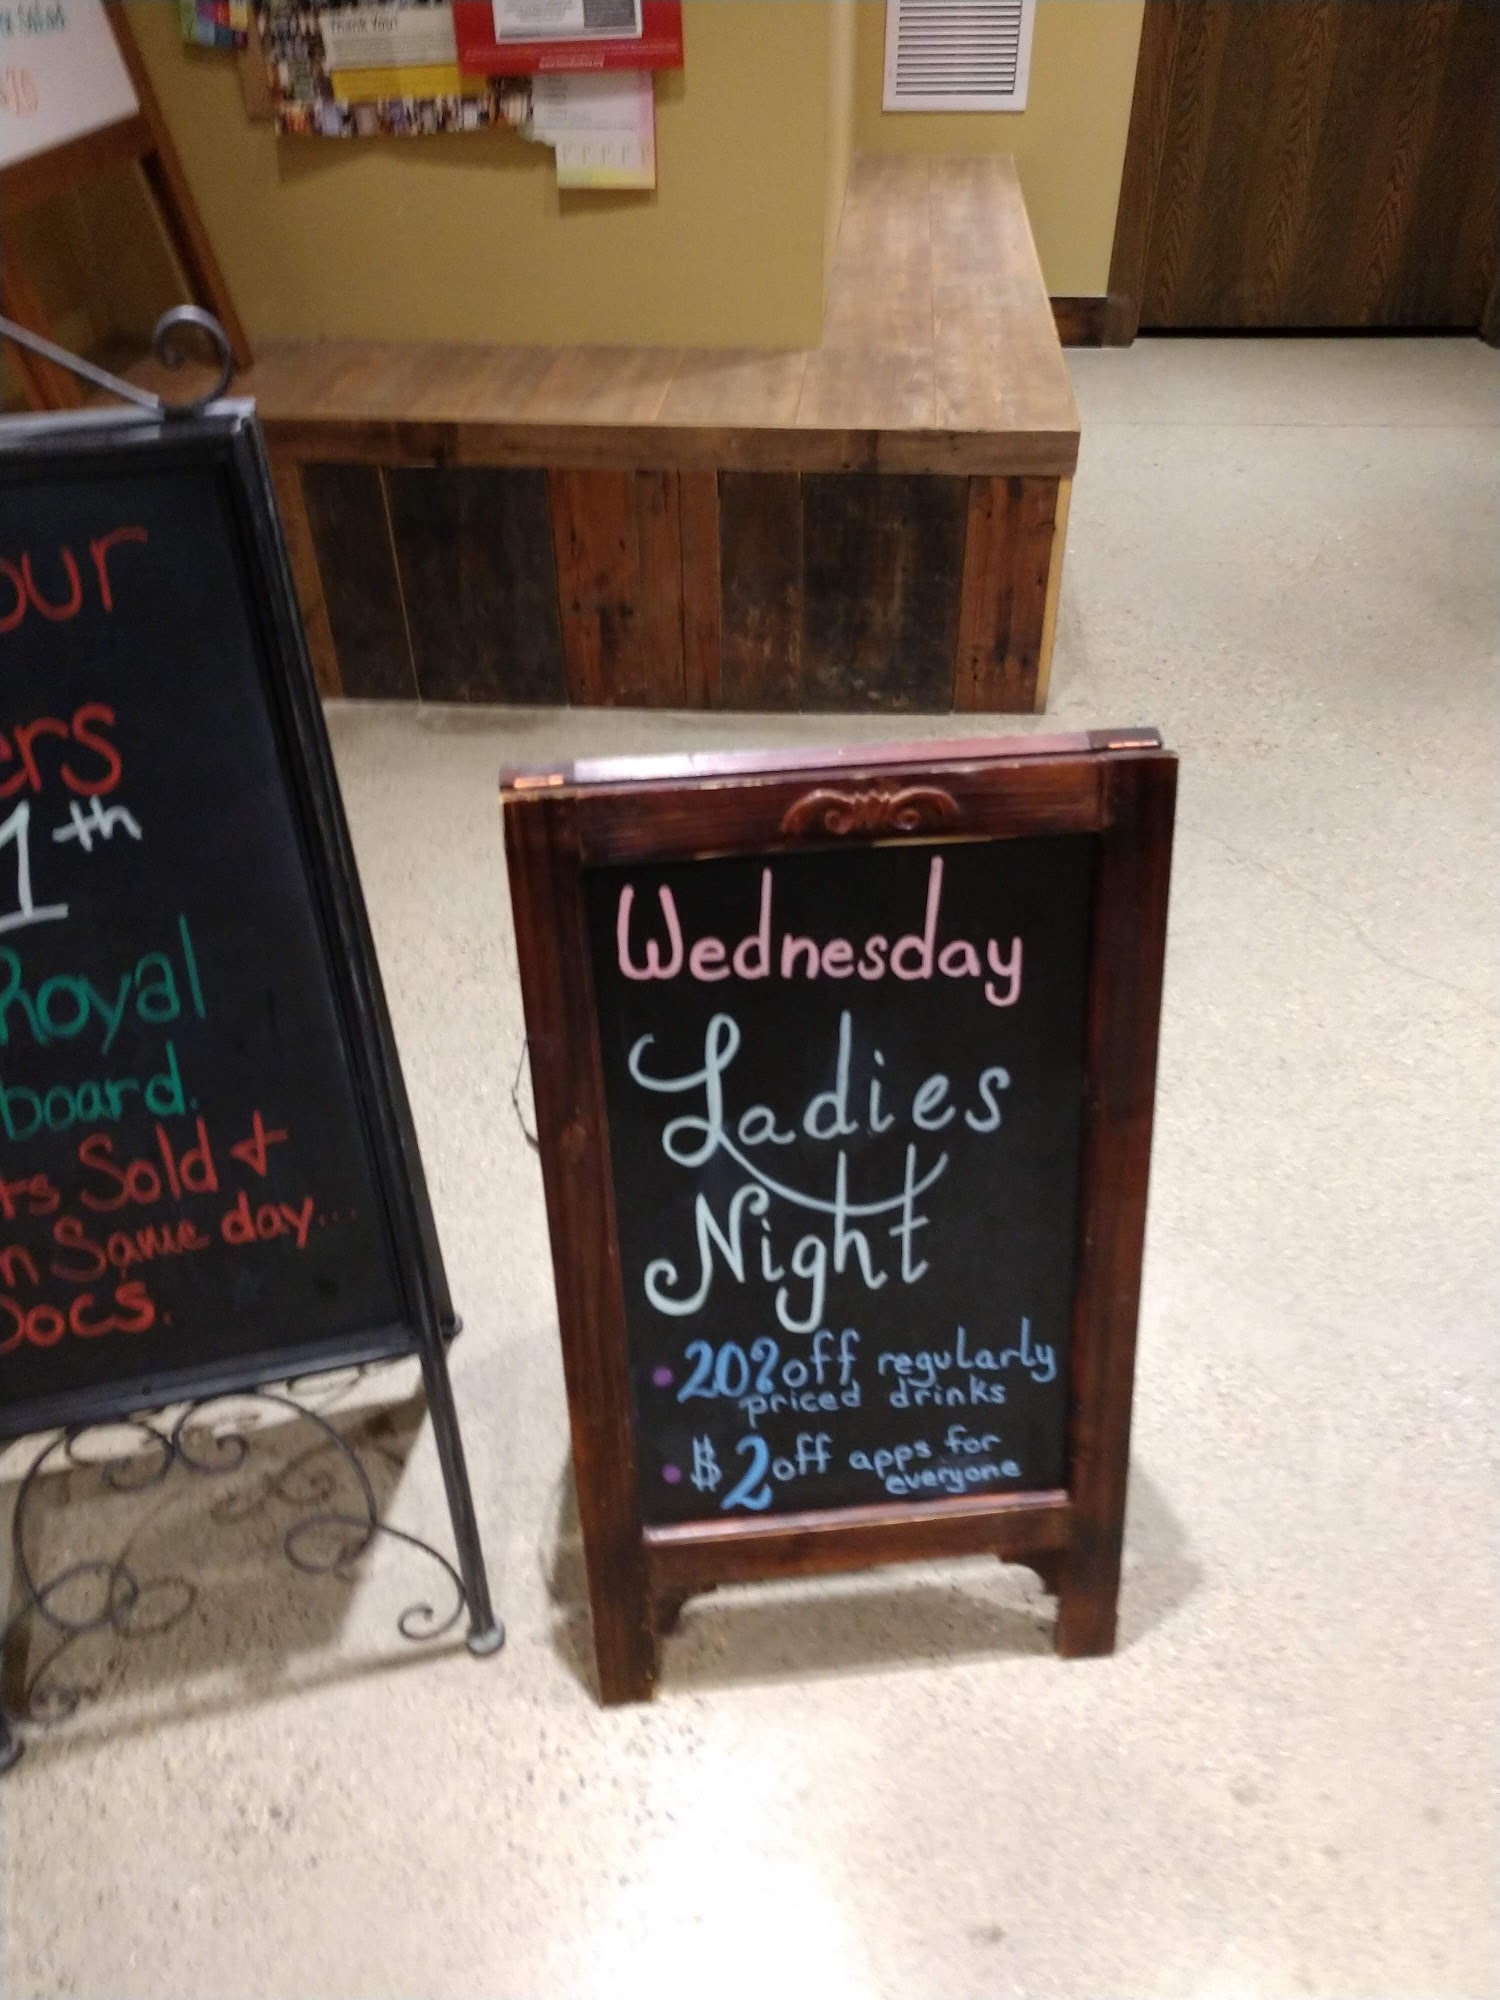 Thank you!
our
ers
1th
Royal
board.
ts Sold &
n Same day...
Docs.
Wednesday
Ladies
Night
• 20% off regularly
priced drinks
• $2 off apps for
everyone